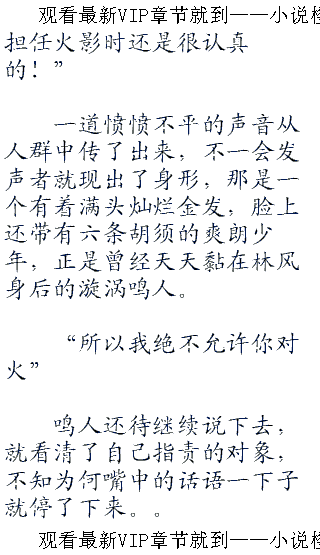 观看最新VIP章节就到——小说检
担任火影时还是很认真
的！”
一道愤愤不平的声音从
人群中传了出来，不一会发
声者就现出了身形，那是一
个有着满头灿烂金发，脸上
还带有六条胡须的爽朗少
年，正是曾经天天黏在林风
身后的漩涡鸣人。
“所以我绝不允许你对
火”
鸣人还待继续说下去，
就看清了自己指责的对象，
不知为何嘴中的话语一下子
就停了下来。。
观看最新VIP章节就到——小说检